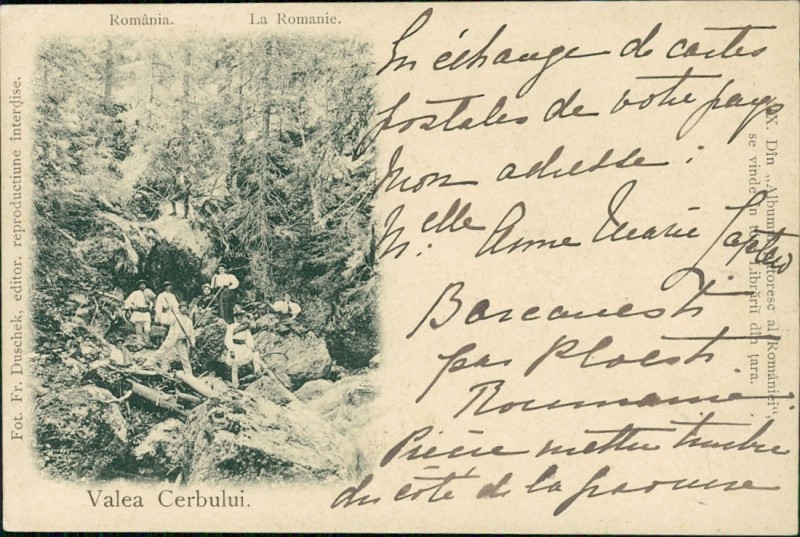 România. La Romanie.
Fot. Fr. Duschek, editor. reproductiune interdise.
Valea Cerbului.
En échange de cartes
postales de votre pays
Mon adresse :
Mlle. Anne Marie
Barcanesti
par Ploesti
Roumanie.
Prière mettre timbre
du côté de la gravure
X. Din „Album pitoresc al României“,
se vinde în Librării din țara.